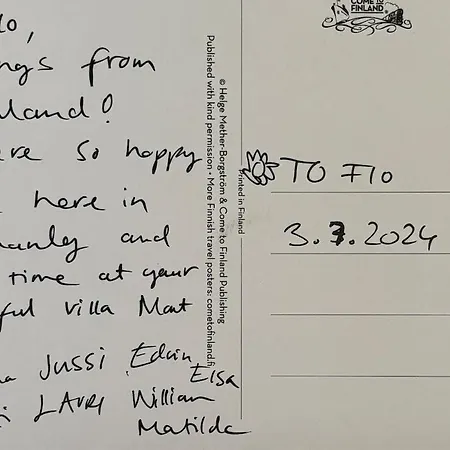 lo,
ngs from
land!
ere so happy
here in
and
time at your
ful villa Mat
a Jussi Edvin
Elsa
i LAURI William
Matilda
© Helge Mether-Borgström & Come to Finland Publishing
Published with kind permission • More Finnish travel posters: cometofinland.fi
Printed in Finland
COME TO
FINLAND
TO Flo
3.7.2024